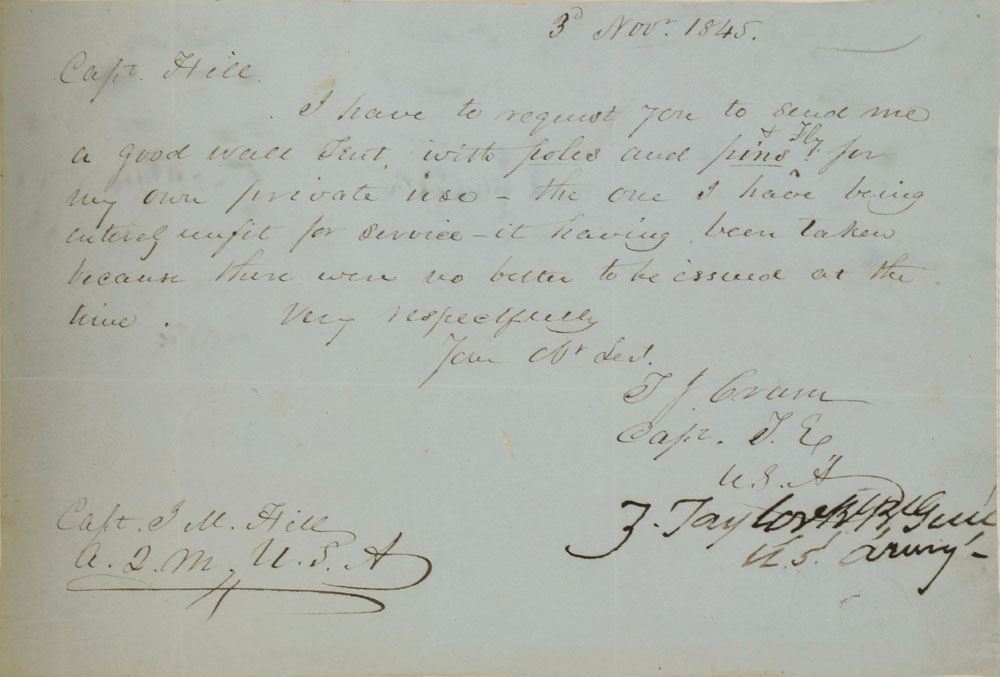 3d Novr. 1845.
Capt. Hill.
I have to request you to send me
a good wall Tent, with poles and pins & Fly for
my own private use – the one I have being
entirely unfit for service – it having been taken
because there were no better to be issued at the
time. Very respectfully
Your Obt Sevt.
T J Cram
Capt. T. E.
U.S.A
Capt. J M. Hill
A. Q. M, U. S. A
Z. Taylor Genl
U.S. Army–